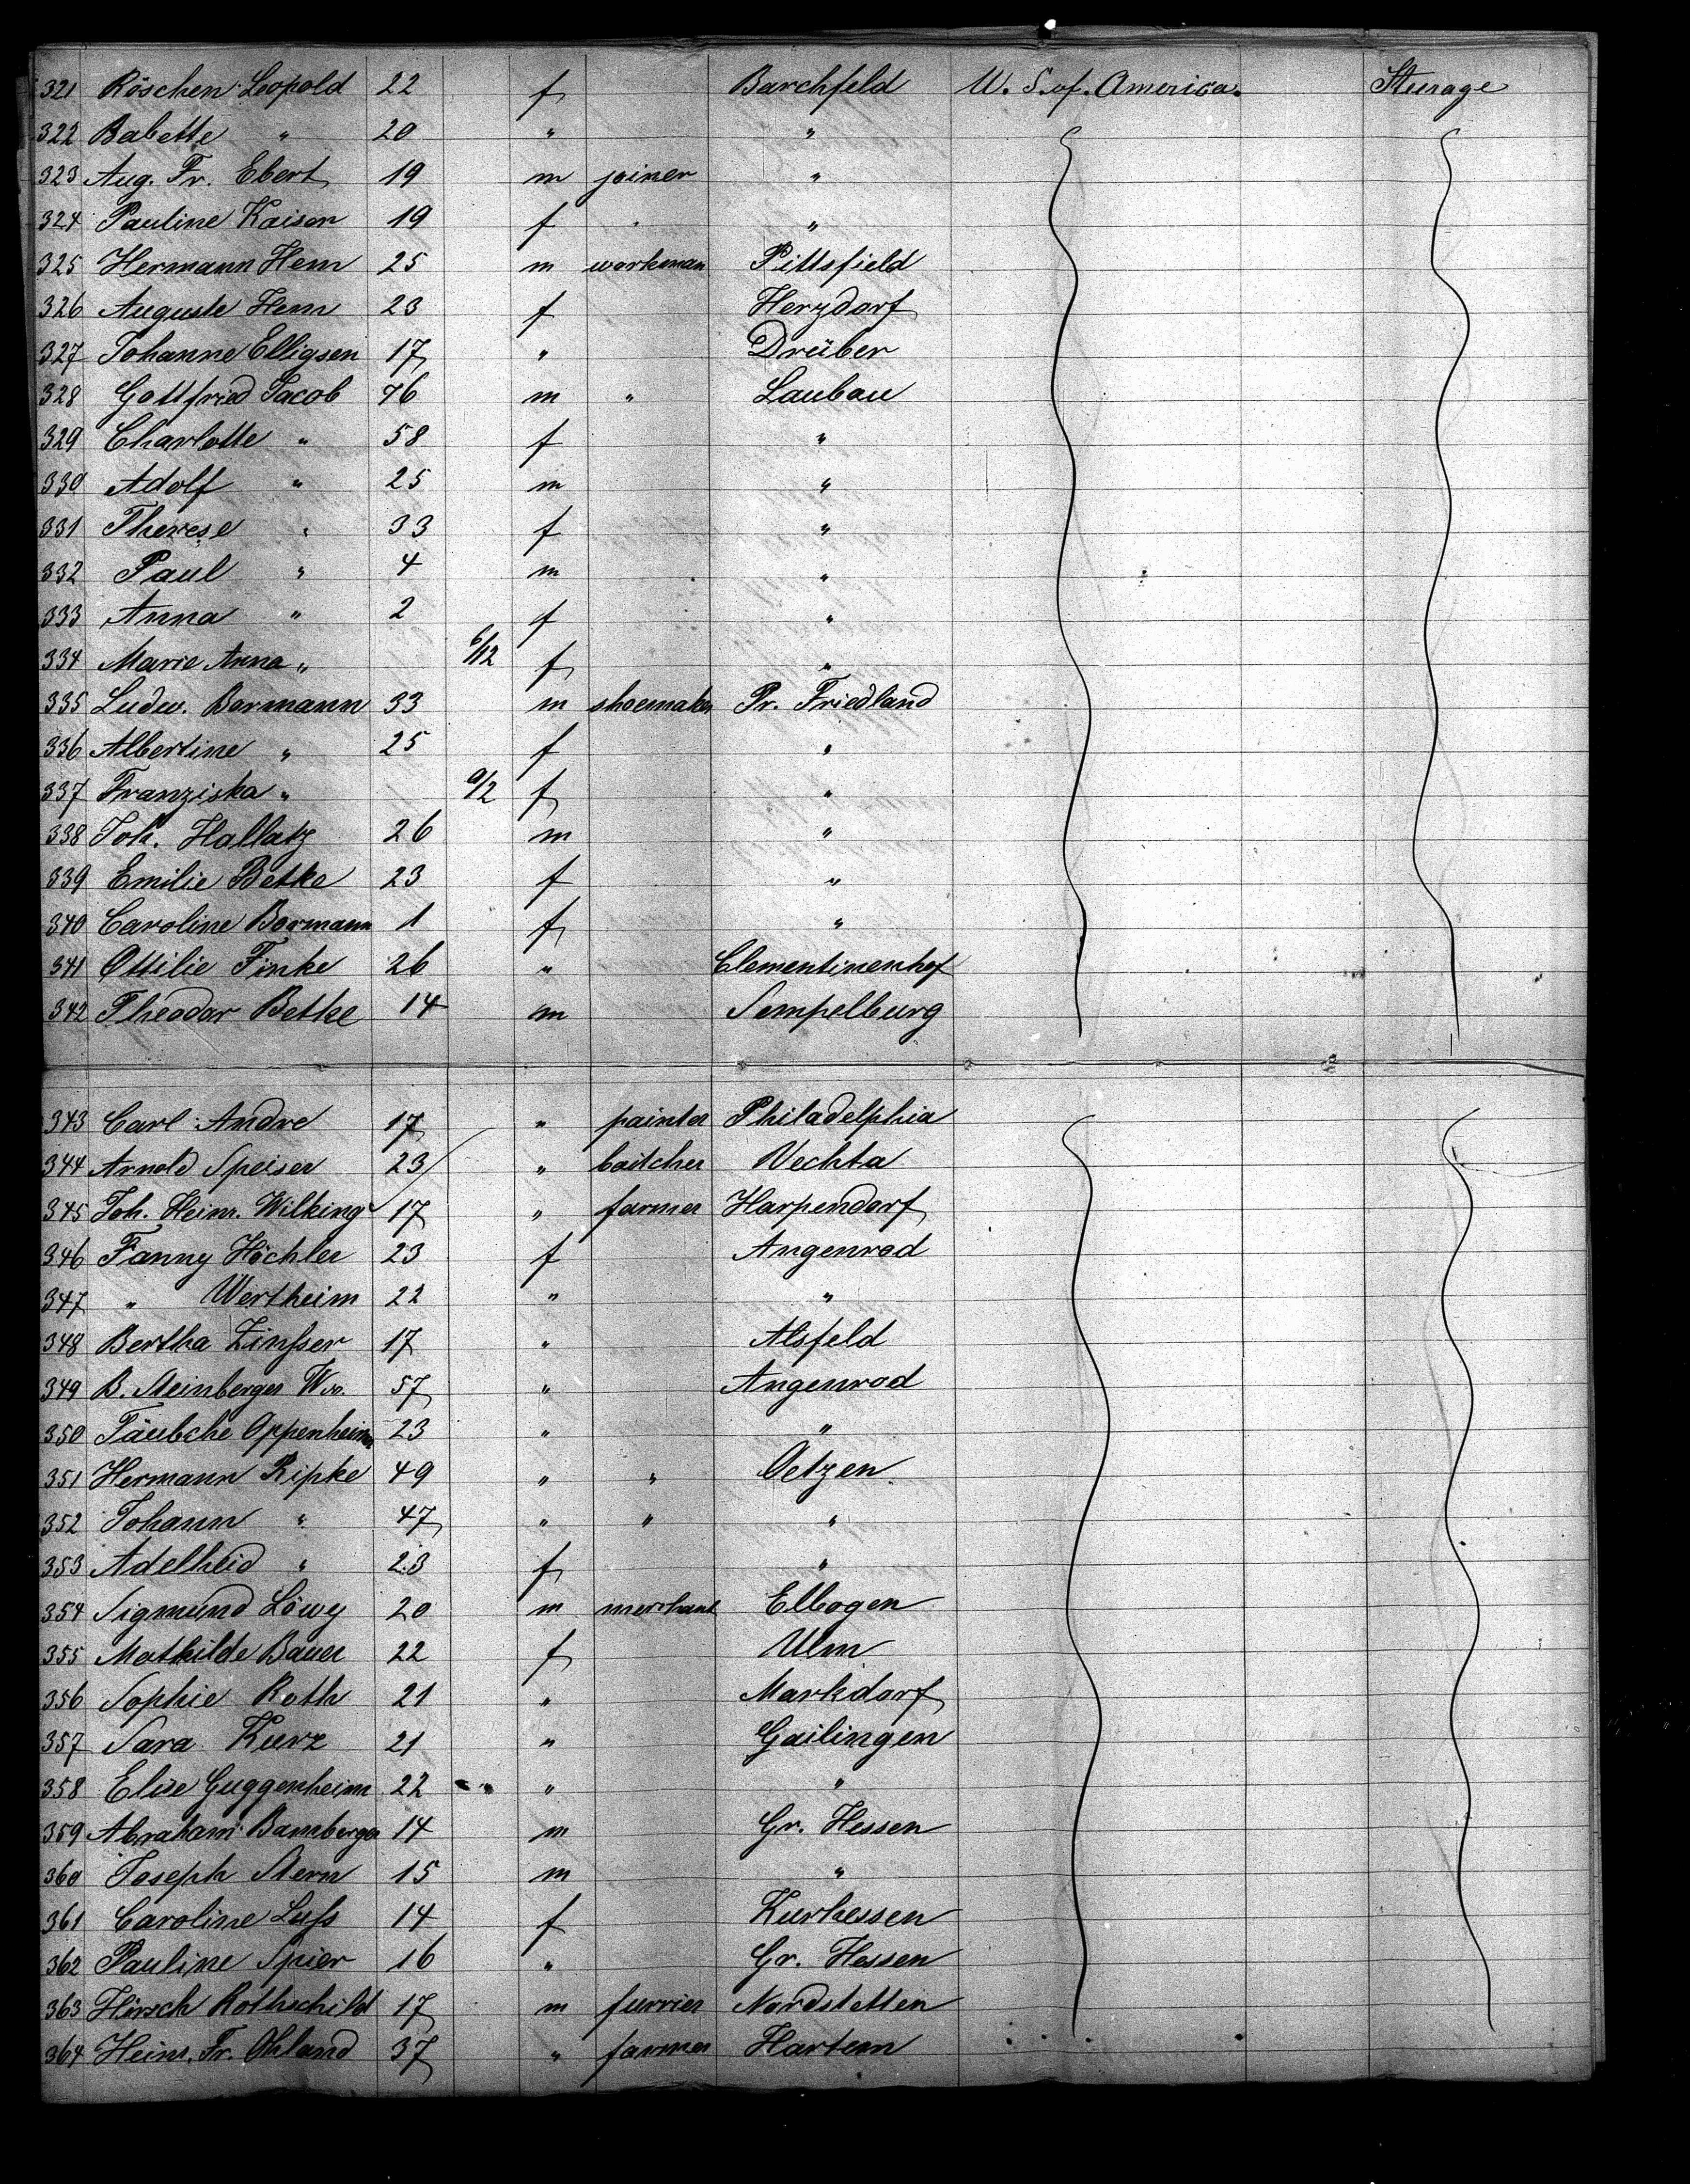 321 Röschen Leopold 22 f Barchfeld U. S. of. America. Steerage
322 Babette " 20 " "
323 Aug. Fr. Ebert 19 m joiner "
324 Pauline Kaiser 19 f "
325 Hermann Hem 25 m workman Pittsfield
326 Auguste Hem 23 f Herzdorf
327 Johanne Elligsen 17 " Drüber
328 Gottfried Jacob 76 m " Laubau
329 Charlotte " 58 f "
330 Adolf " 25 m "
331 Therese " 33 f "
332 Paul " 4 m "
333 Anna " 2 f "
334 Marie Anna " 6/12 f "
335 Ludw. Bormann 33 m shoemaker Pr. Friedland
336 Albertine " 25 f "
337 Franziska " f "
338 Joh. Hallatz 26 m "
339 Emilie Betke 23 f "
340 Caroline Bormann 1 f "
341 Ottilie Finke 26 " Clementinenhof
342 Theodor Betke 14 m Sempelburg
343 Carl Andre 17 " painter Philadelphia
344 Arnold Speiser 23 " boitcher Vechta
345 Joh. Heinr. Wilking 17 " farmer Harpendorf
346 Fanny Höchler 23 f Angenrod
347 " Wertheim 22 " "
348 Bertha Zinsser 17 " Alsfeld
349 B. Steinberger Ww. 57 " Angenrod
350 Täubche Oppenheimer 23 " "
351 Hermann Ripke 49 " " Oetzen
352 Johann " 47 " " "
353 Adelheid " 23 f "
354 Sigmund Löwy 20 m merchant Elbogen
355 Mathilde Bauer 22 f Ulm
356 Sophie Roth 21 " Markdorf
357 Sara Kurz 21 " Gailingen
358 Elise Guggenheim 22 " " "
359 Abraham Bamberger 14 m Gr. Hessen
360 Joseph Stern 15 m "
361 Caroline Luss 14 f Kurhessen
362 Pauline Spier 16 " Gr. Hessen
363 Hirsch Rothschild 17 m furrier Nordstetten
364 Heinr. Fr. Ohland 37 " farmer Hartem